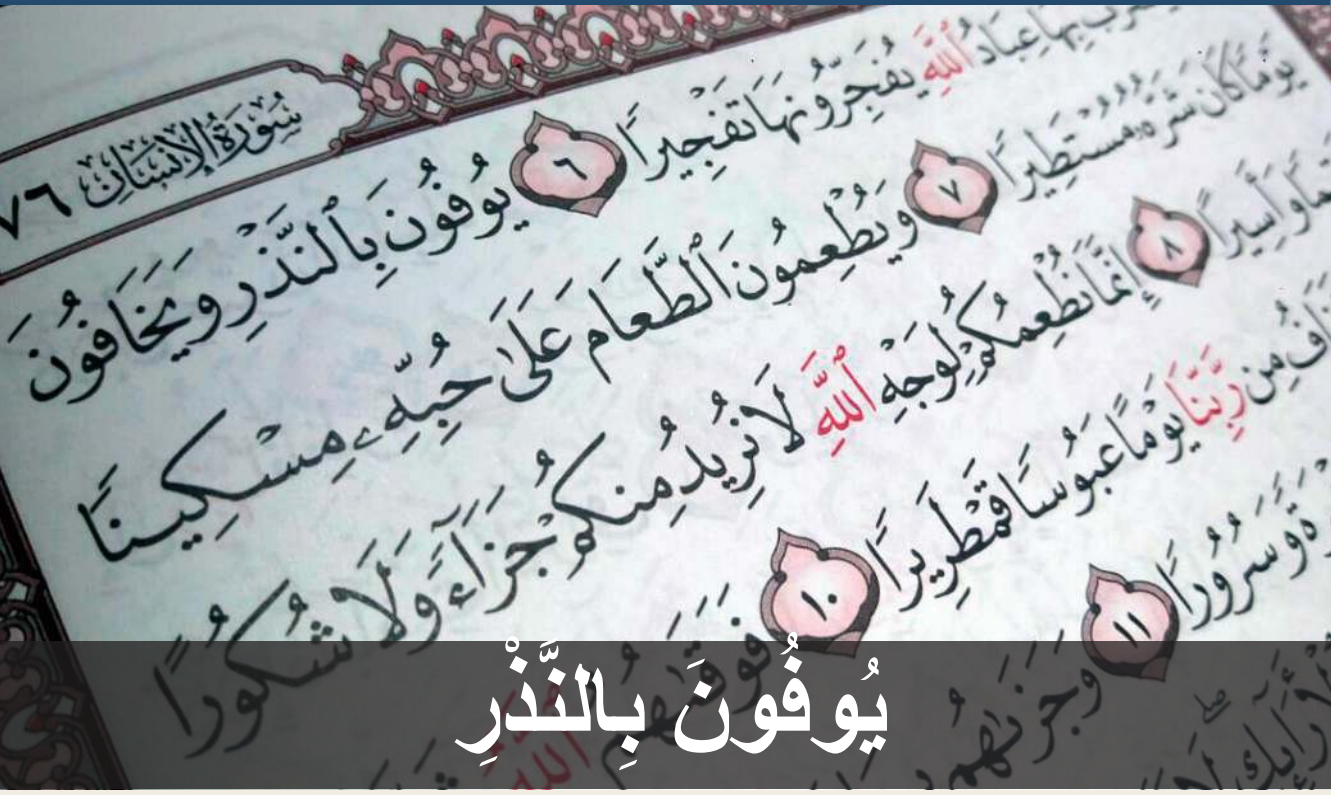 سُورَةُ الإِنسَانِ ٧٦
بِهَا عِبَادُ ٱللَّهِ يُفَجِّرُونَهَا تَفْجِيرًا ٦ يُوفُونَ بِٱلنَّذْرِ وَيَخَافُونَ
يَوْمًا كَانَ شَرُّهُۥ مُسْتَطِيرًا ٧ وَيُطْعِمُونَ ٱلطَّعَامَ عَلَىٰ حُبِّهِۦ مِسْكِينًا
وَأَسِيرًا ٨ إِنَّمَا نُطْعِمُكُمْ لِوَجْهِ ٱللَّهِ لَا نُرِيدُ مِنكُمْ جَزَآءً وَلَا شُكُورًا
مِن رَّبِّنَا يَوْمًا عَبُوسًا قَمْطَرِيرًا ١٠ فَوَقَىٰهُمُ ٱللَّهُ
وَسُرُورًا ١١ وَجَزَىٰهُم
يُوفُونَ بِالنَّذْرِ